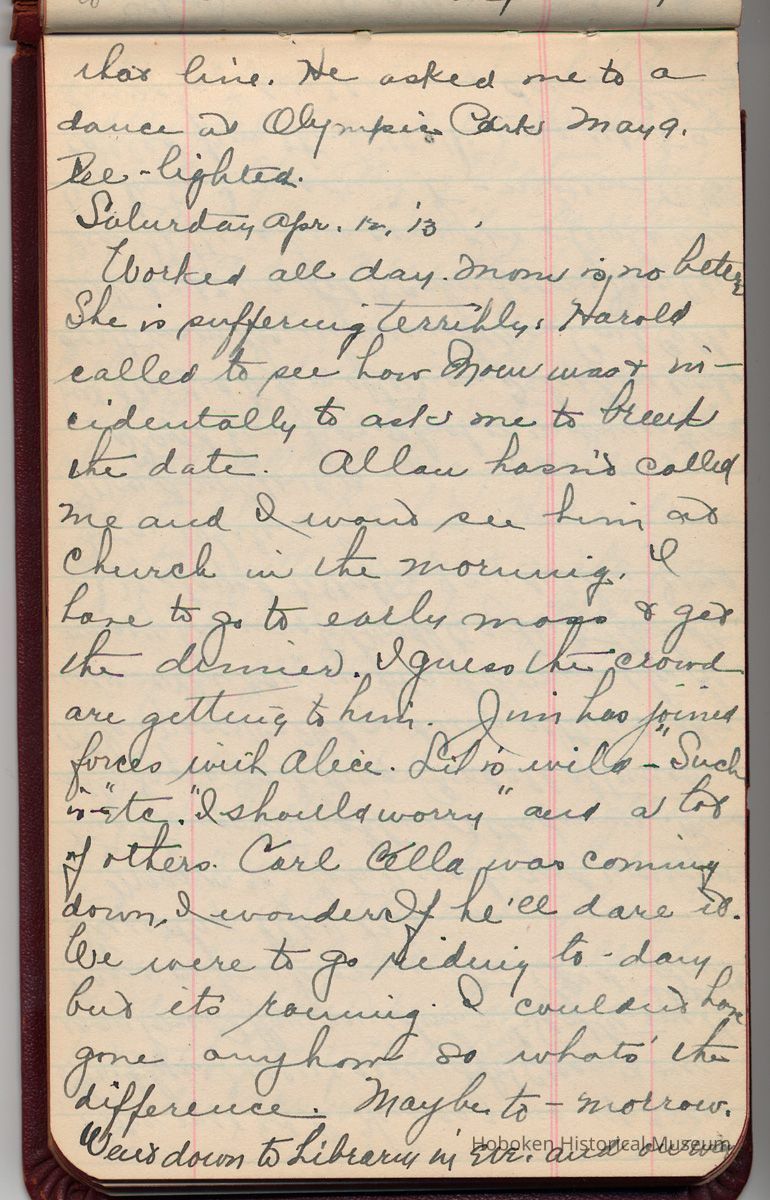 that line. He asked me to a
dance at Olympic Park May 9.
Dee-lighted.
Saturday Apr. 12, '13
Worked all day. Mom is no better
She is suffering terribly. Harold
called to see how Mom was & in-
cidentally to ask me to break
the date. Allan hasn't called
me and I won't see him at
church in the morning. I
have to go to early mass & get
the dinner. I guess the crowd
are getting to him. Jim has joined
forces with Alice. Lil is wild - "Such
is-"etc. "I should worry" and a lot
of others. Carl Cella was coming
down, I wonder if he'll dare it.
We were to go riding to-day
but its raining. I couldn't have
gone anyhow so whats the
difference. Maybe to-morrow.
Went down to Library in eve. and
Hoboken Historical Museum